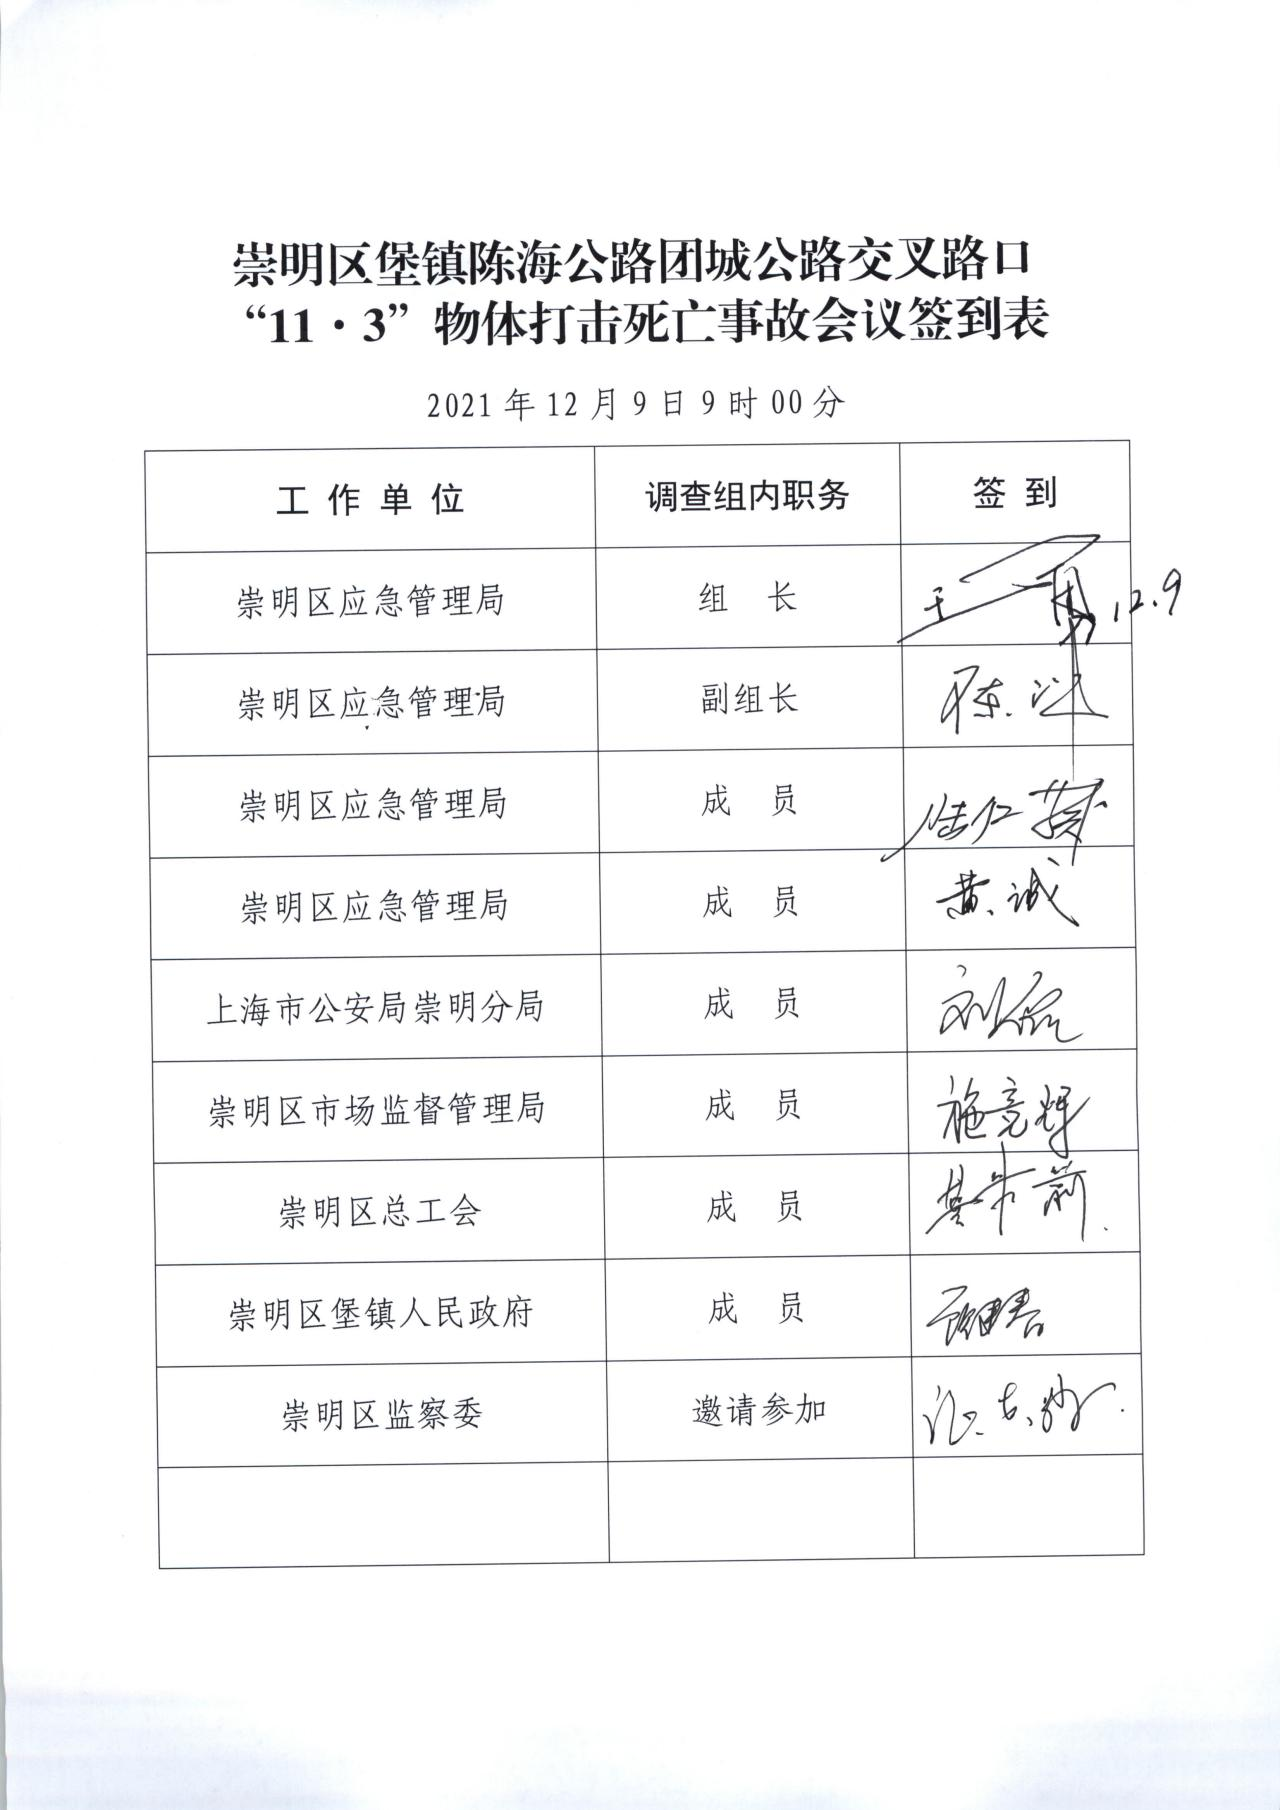 崇明区堡镇陈海公路团城公路交叉路口
“11·3”物体打击死亡事故会议签到表
2021年12月9日9时00分
工作单位 调查组内职务 签到
崇明区应急管理局 组长 12.9
崇明区应急管理局 副组长 陈
崇明区应急管理局 成员 陆仁
崇明区应急管理局 成员 黄诚
上海市公安局崇明分局 成员 刘磊
崇明区市场监督管理局 成员 施竞辉
崇明区总工会 成员
崇明区堡镇人民政府 成员
崇明区监察委 邀请参加